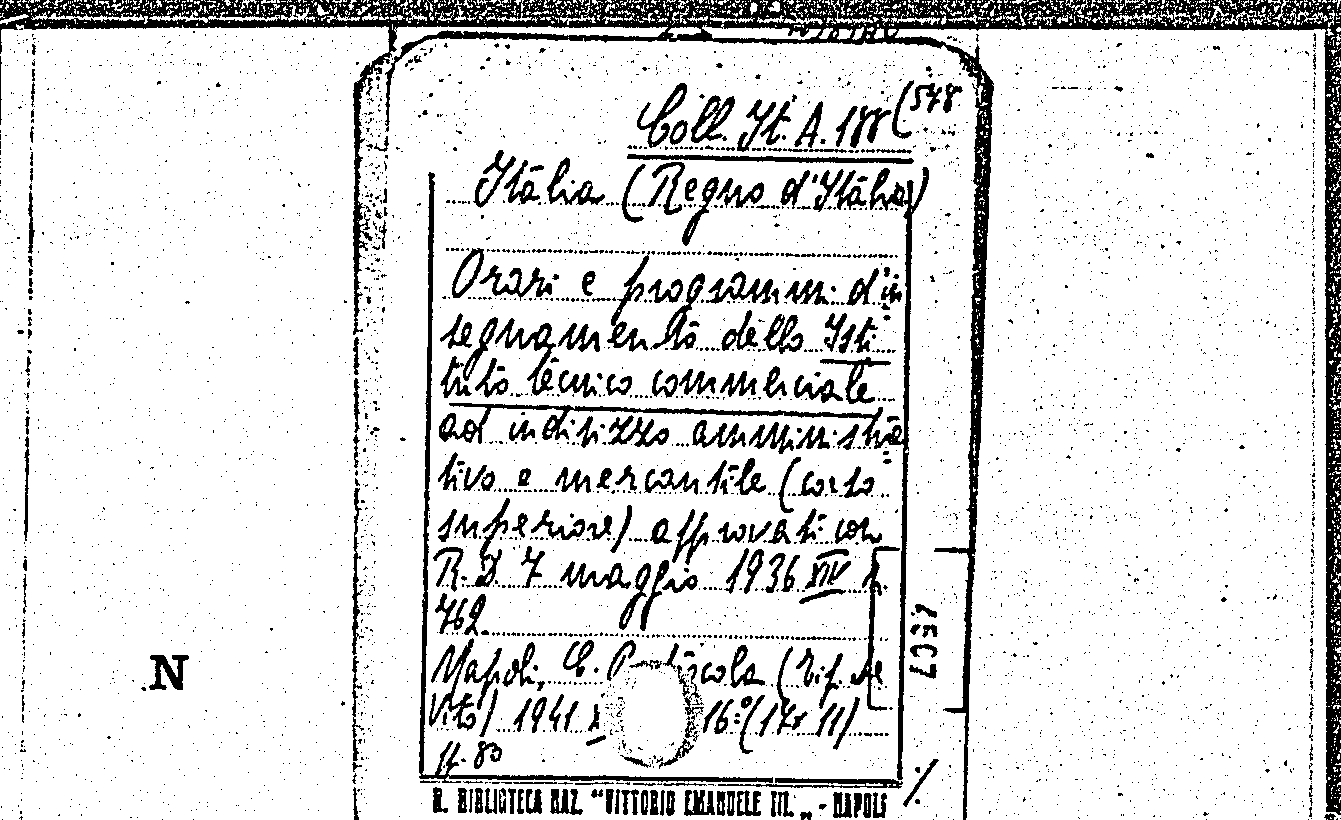 Coll. It. A. 188 (548
Italia (Regno d'Italia)
Orari e programmi d'in
segnamento dello Isti
tuto tecnico commerciale
ad indirizzo amministra
tivo e mercantile (corso
superiore) approvati con
R. D. 7 maggio 1936 XIV n.
762.
Napoli, (Tip. De
Vito) 1941 16:° (17x11)
pp. 80
R. BIBLIOTECA NAZ. "VITTORIO EMANUELE III. „ - NAPOLI
N